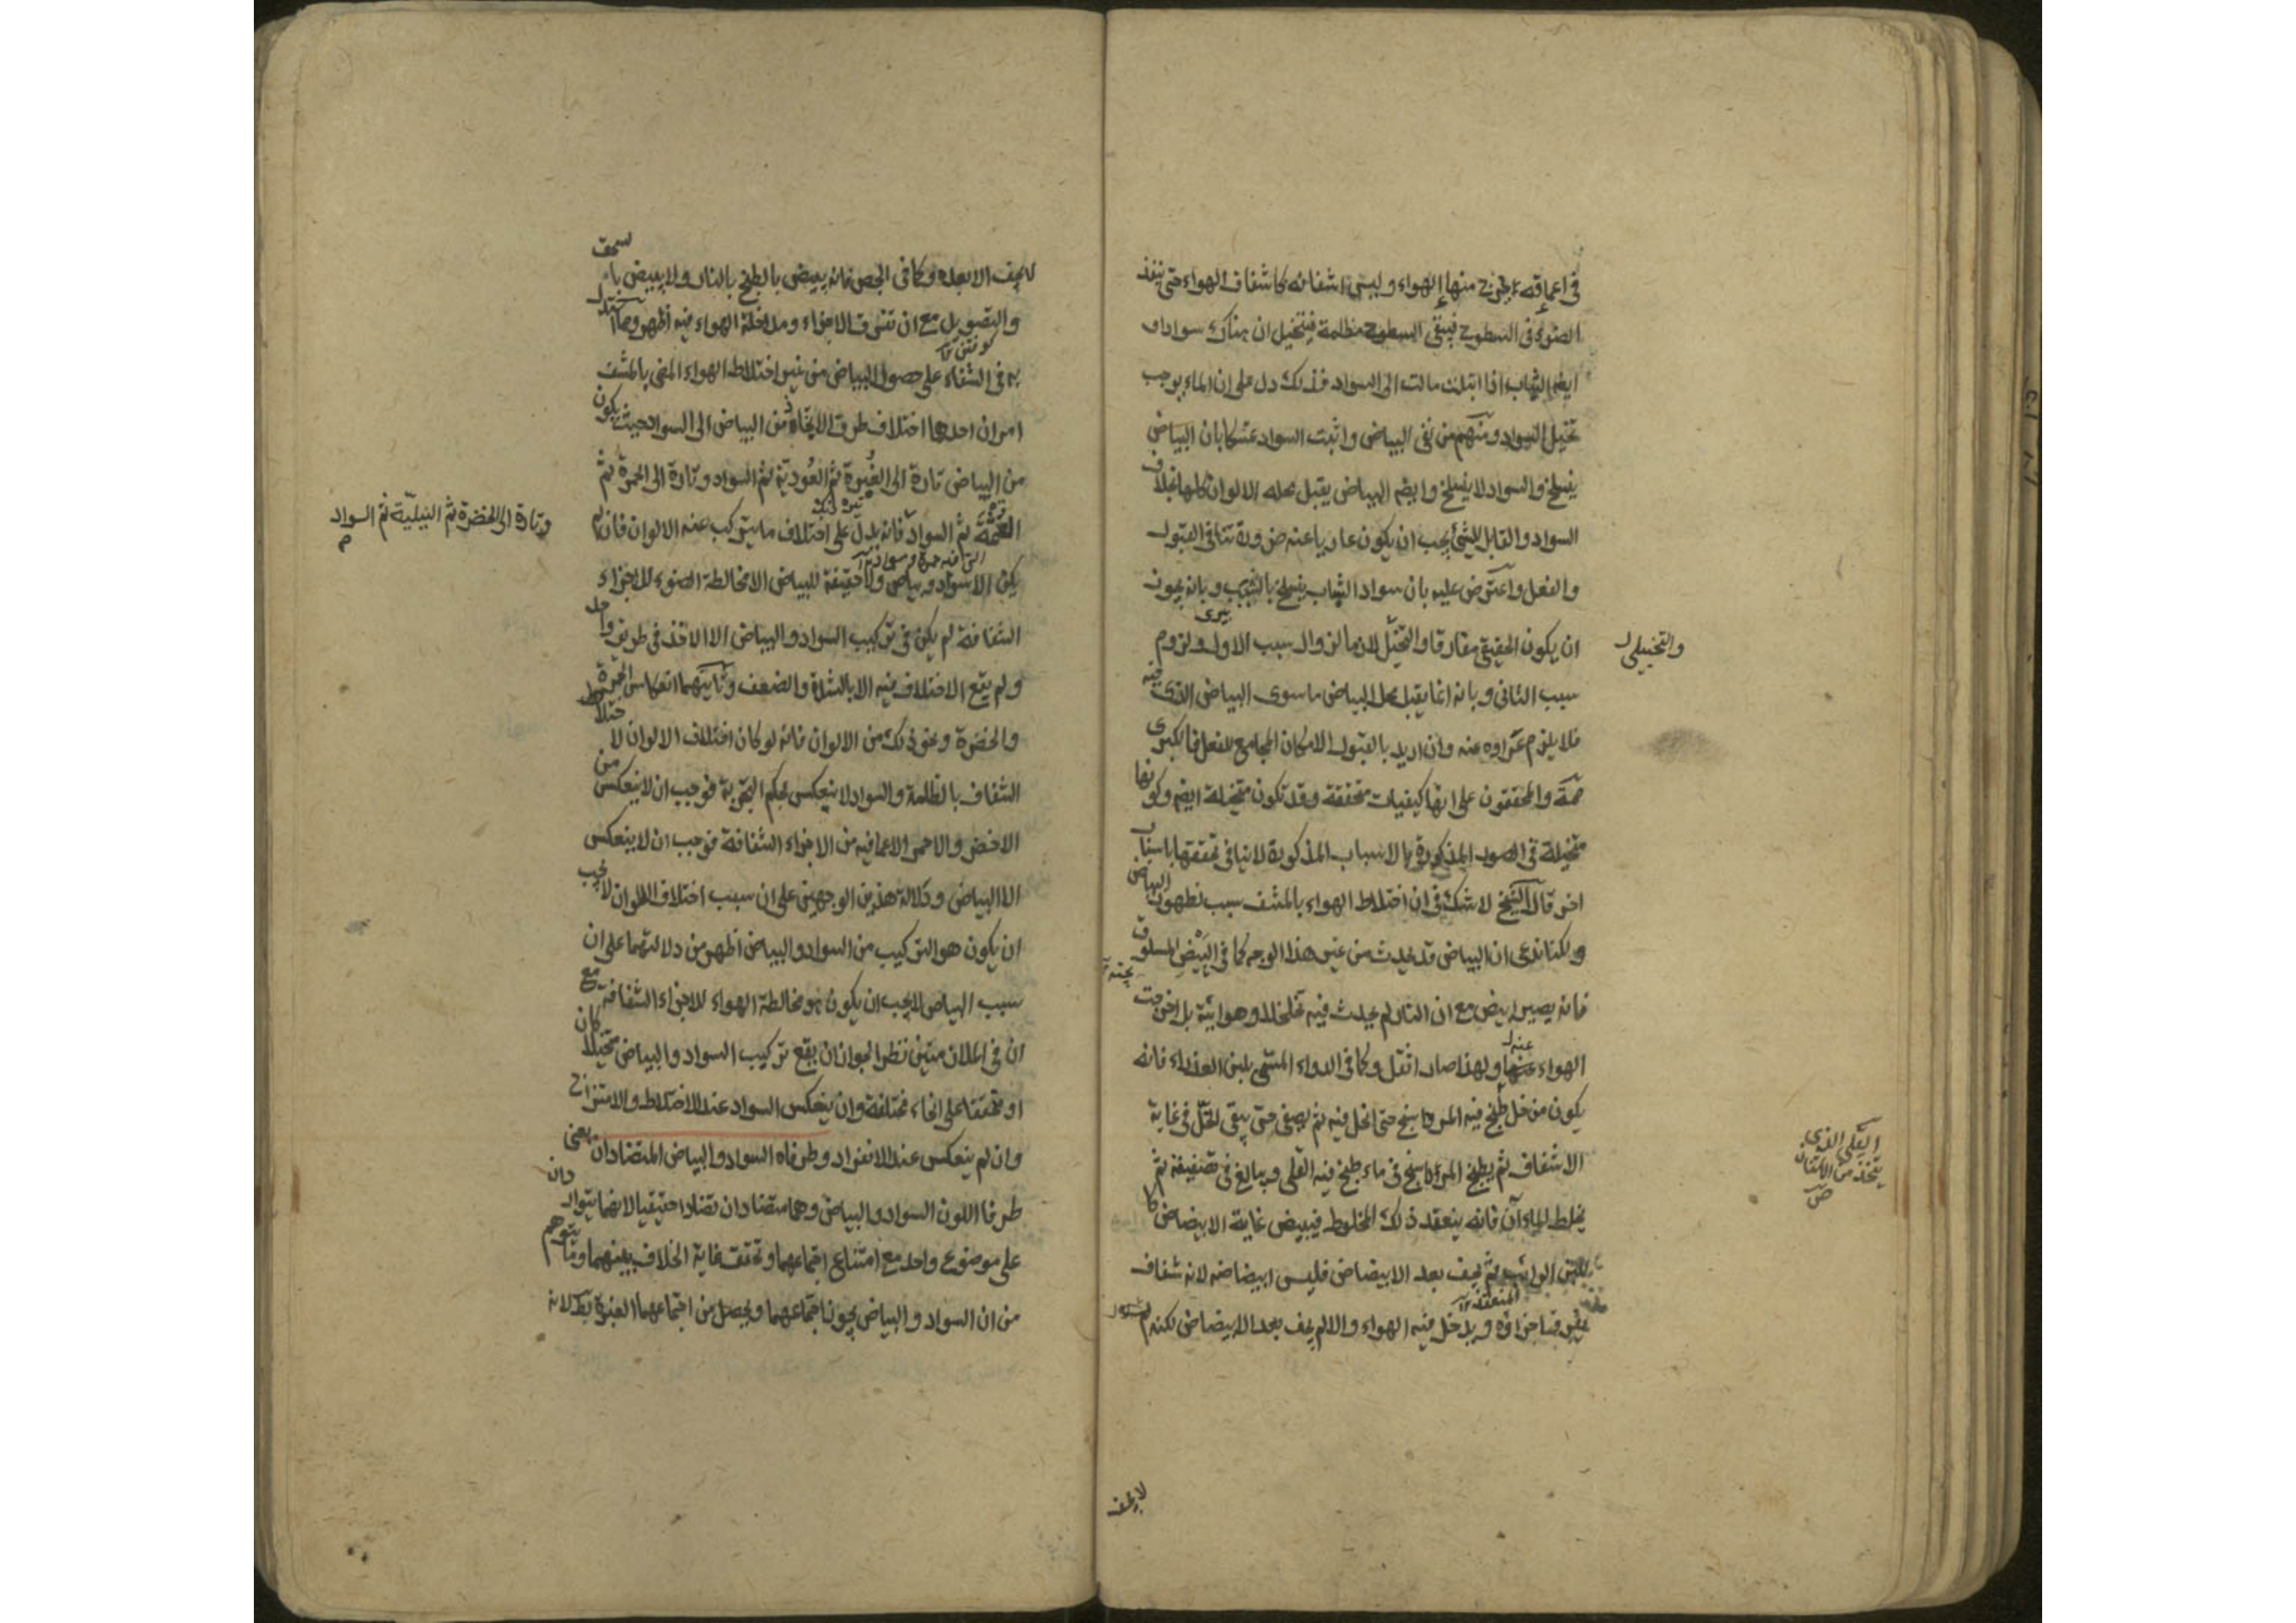 في اعماقه ويخرج منها الهواء وليس اشفافه كاشفاف الهواء حتى ينفذ
الضوء في السطوح فيبقى السطوح مظلمة فيتخيل ان هناك سوادا و
ايضا الثياب اذا ابتلت مالت الى السواد فذلك دل على ان الماء يوجب
تخيل السواد ومنهم من نفى البياض واثبت السواد متمسكا بان البياض
ينسلخ والسواد لا ينسلخ وايضا البياض يقبل محله الالوان كلها بخلاف
السواد والقابل للشئ يجب ان يكون عاريا عنه ضرورة تنافي القبول
والفعل واعترض عليه بان سواد الشباب ينسلخ بالشيب وبانه يجوز
ان يكون الحقيقي مفارقا والتخيلي لازما لزوال سبب الاول ولزوم
والتخييلي
سبب الثاني وبانه انما يقبل محل البياض ما سوى البياض الذي فيه
فلا يلزم عراؤه عنه وان اريد بالقبول الامكان المجامع للفعل فالكبرى
والمحققون على انها كيفيات متحققة وقد تكون متخيلة ايضا وكونها
متخيلة في الصور المذكورة بالاسباب المذكورة لا ينافي تحققها باسباب
اخر قال الشيخ لا شك في ان اختلاط الهواء بالمشف سبب لظهور البياض
ولكنا ندعي ان البياض قد يحدث من غير هذا الوجه كما في البيض المسلوق
فانه يصير ابيض مع ان النار لم يحدث فيه تخلخلا وهوائية بل اخرجت
الهواء عنه ولهذا صار اثقل وكما في الدواء المسمى بلبن العذراء فانه
يكون من خل طبخ فيه المرداسنج حتى انحل فيه ثم يصفى حتى يبقى الخل في غاية
الاشفاف ثم يطبخ المرداسنج في ماء طبخ فيه القلى ويبالغ في تصفيته ثم
القلى الذي
يتخذ من الاشنان
ص
يخلط الماءان فانه ينعقد ذلك المخلوط فيبيض غاية الابيضاض كا
للبن الرائب ثم يجف بعد الابيضاض فليس ابيضاضه لانه شفاف
تفرق اجزاؤه ويدخل فيه الهواء والا لم يجف بعد الابيضاض لكنه
لا يجف
لا يجف الا بعده وكما في الجص فانه يبيض بالطبخ بالنار ولا يبيض بالسحق
والتصويل مع ان تفرق الاجزاء ومداخلة الهواء فيه اظهر ومما استدل
به في الشفاء على حصول البياض من غير اختلاط الهواء المضئ بالمشف
امران احدهما اختلاف طرق الاتجاه من البياض الى السواد حيث يكون
من البياض تارة الى الغبرة ثم العودية ثم السواد وتارة الى الحمرة ثم
القتمة ثم السواد فانه يدل على اختلاف ما يتركب عنه الالوان فان لم
وتارة الى الخضرة ثم النيلية ثم السواد
يكن الا سواد وبياض ولا حقيقة للبياض الا مخالطة الضوء للاجزاء
الشفافة لم يكن في تركيب السواد والبياض الا الاخذ في طريق واحد
ولم يقع الاختلاف فيه الا بالشدة والضعف وثانيهما انعكاس الحمرة
والخضرة ونحو ذلك من الالوان فانه لو كان اختلاف الالوان لاختلاط
الشفاف بالظلمة والسواد لا ينعكس بحكم التجربة فوجب ان لا ينعكس من
الاخضر والاحمر الا ما فيه من الاجزاء الشفافة فوجب ان لا ينعكس
الا البياض ودلالة هذين الوجهين على ان سبب اختلاف الالوان لا يجب
ان يكون هو التركيب من السواد والبياض اظهر من دلالتهما على ان
سبب البياض لا يجب ان يكون هو مخالطة الهواء للاجزاء الشفافة مع
ان في الملازمتين نظرا لجواز ان يقع تركيب السواد والبياض متخيلا كان
او متحققا على انحاء مختلفة وان ينعكس السواد عند الاختلاط والامتزاج
وان لم ينعكس عند الانفراد وطرفاه السواد والبياض المتضادان يعني
طرفا اللون السواد والبياض وهما متضادان تضادا حقيقيا لانهما يتواردان
على موضوع واحد مع امتناع اجتماعهما وتحقق غاية الخلاف بينهما وما يتوهم
من ان السواد والبياض يجوز اجتماعهما ويحصل من اجتماعهما الغبرة بط لانه